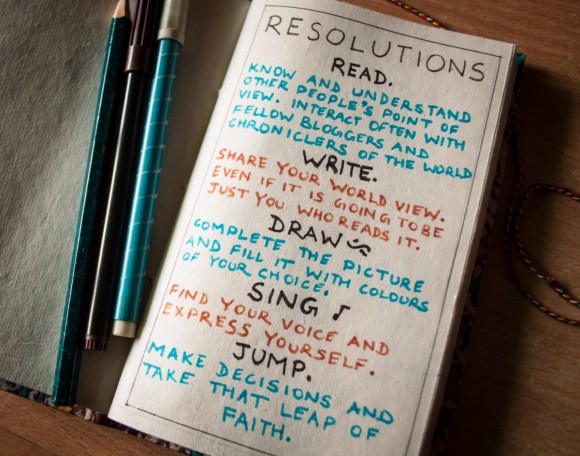 RESOLUTIONS
READ.
KNOW AND UNDERSTAND
OTHER PEOPLE'S POINT OF
VIEW. INTERACT OFTEN WITH
FELLOW BLOGGERS AND
CHRONICLERS OF THE WORLD
WRITE.
SHARE YOUR WORLD VIEW.
EVEN IF IT IS GOING TO BE
JUST YOU WHO READS IT.
DRAW
COMPLETE THE PICTURE
AND FILL IT WITH COLOURS
OF YOUR CHOICE.
SING ♪
FIND YOUR VOICE AND
EXPRESS YOURSELF.
JUMP.
MAKE DECISIONS AND
TAKE THAT LEAP OF
FAITH.